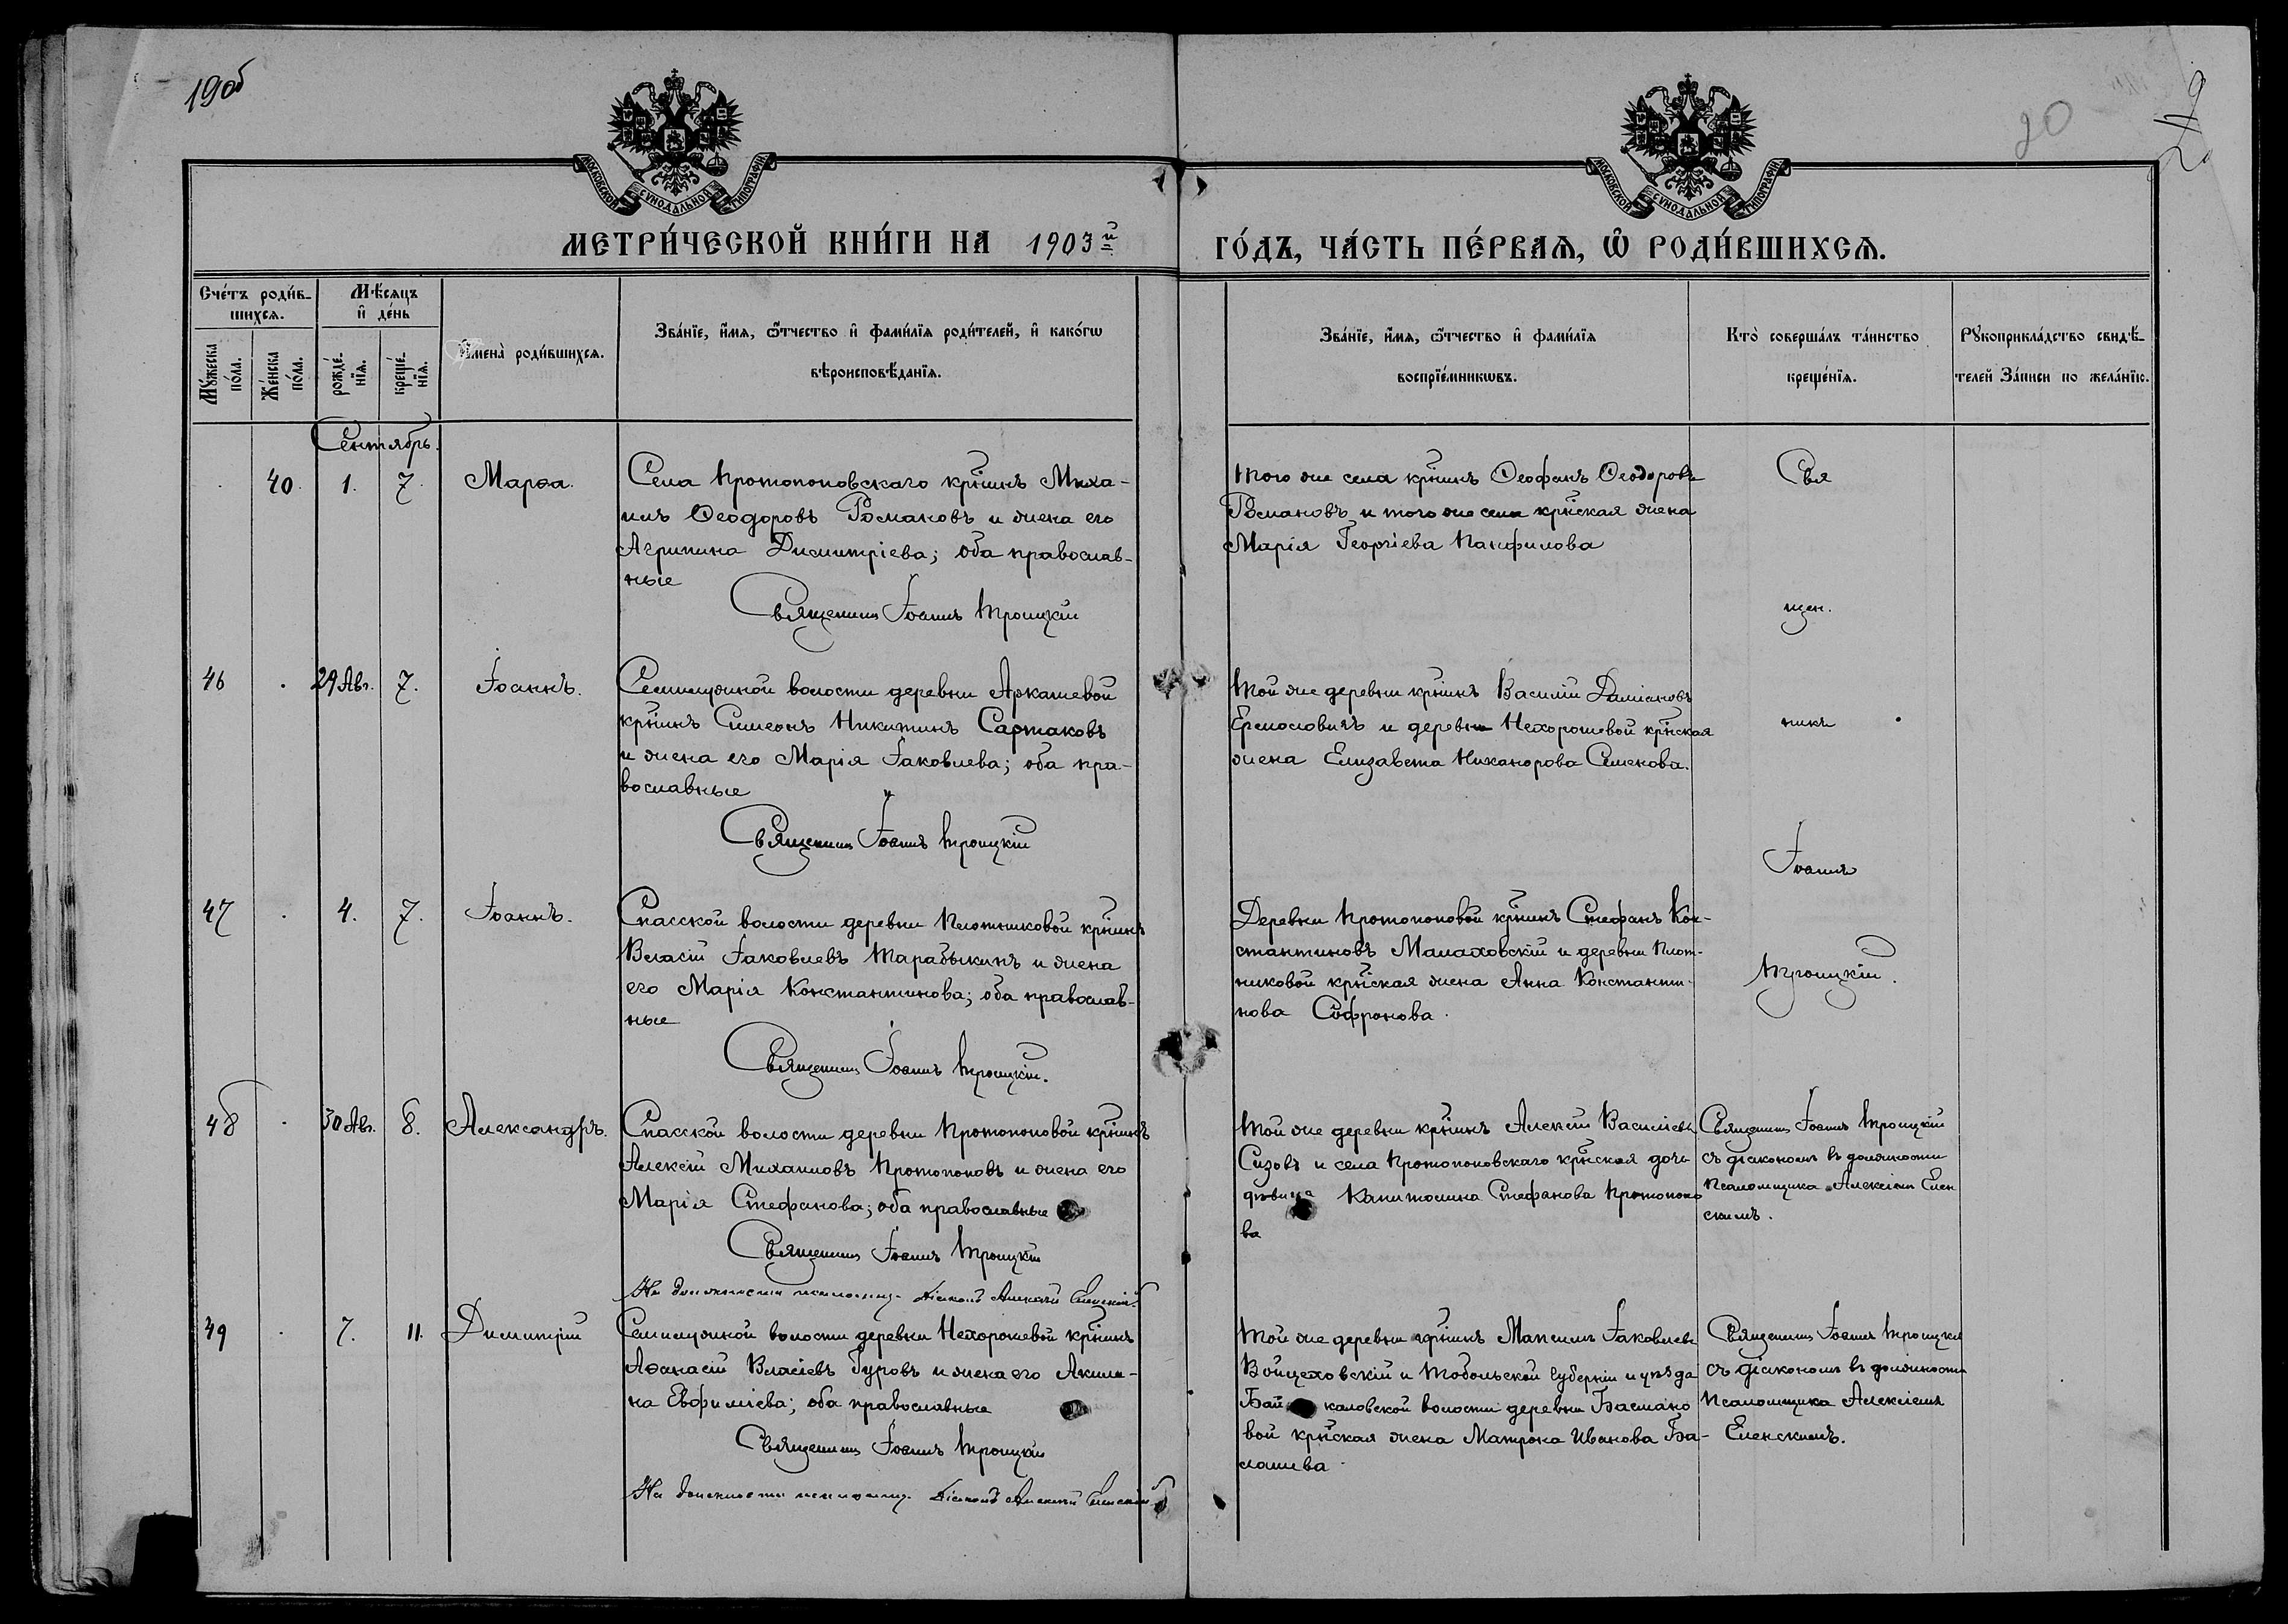 190б
20
19
МОСКОВСКОЙ СѴНОДАЛЬНОЙ ТИПОГРАФІИ
МОСКОВСКОЙ СѴНОДАЛЬНОЙ ТИПОГРАФІИ
МЕТРИ́ЧЕСКОЙ КНИ́ГИ НА 1903й ГО́ДЪ, ЧА́СТЬ ПЕ́РВАѦ, Ѡ РОДИ́ВШИХСѦ.
Сче́тъ роди́в-
шихсѧ.
Мѣ́сѧцъ
и҆ де́нь
Мꙋ́жеска
по́ла.
Же́нска
по́ла.
рожде́-
нїѧ.
креще́-
нїѧ.
И҆мена̀ роди́вшихсѧ.
Зва́нїе, и҆́мѧ, ѻ҆́тчество и҆ фами́лїѧ роди́телей, и҆ како́гѡ
вѣроисповѣ́данїѧ.
Зва́нїе, и҆́мѧ, ѻ҆́тчество и҆ фами́лїѧ
воспрїе́мникѡвъ.
Кто̀ соверша́лъ та́инство
креще́нїѧ.
Рꙋкоприкла́дство свидѣ́-
телей за́писи по жела́нїю.
Сентябрь.
40. 1. 7. Марѳа.
Села Протопоповскаго крнинъ Миха-
илъ Ѳеодоровъ Росмановъ и жена его
Агрипина Димитріева; оба православ-
ные
Священникъ Іоаннъ Троицкій
Того же села крнинъ Ѳеофанъ Ѳеодоровъ
Росмановъ и того же села крнская жена
Марія Георгіева Панфилова
Свя
щен.
46 29 Авг. 7. Іоаннъ.
Семилужной волости деревни Аркашевой
крнинъ Симеонъ Никитинъ Сартаковъ
и жена его Марія Іаковлева; оба пра-
вославные
Священникъ Іоаннъ Троицкій
Той же деревни крнинъ Василій Даміановъ
Ермословичъ и деревни Нехорошевой крнская
жена Елизавета Никанорова Семенова.
никъ
Іоаннъ
47 4. 7. Іоаннъ.
Спасской волости деревни Плотниковой крнинъ
Власій Іаковлевъ Тарабыкинъ и жена
его Марія Константинова; оба православ-
ные
Священникъ Іоаннъ Троицкій.
Деревни Протопоповой крнинъ Стефанъ Кон-
стантиновъ Малаховскій и деревни Плот-
никовой крнская жена Анна Константи-
нова Софронова.
Троицкій.
48 30 Авг. 8. Александръ.
Спасской волости деревни Протопоповой крнинъ
Алексій Михаиловъ Протопоповъ и жена его
Марія Стефанова; оба православные
Священникъ Іоаннъ Троицкій
На должности псаломщ. діаконъ Алексій Еленскій
Той же деревни крнинъ Алексій Василіевъ
Сизовъ и села Протопоповскаго крнская дочь
дѣвица Капитолина Стефанова Протопопо
ва
Священникъ Іоаннъ Троицкій
съ діакономъ въ должности
псаломщика Алексіемъ Елен
скимъ.
49 7. 11. Димитрій
Семилужной волости деревни Нехорошевой крнинъ
Аѳанасій Власіевъ Гуровъ и жена его Акили-
на Евфиміева; оба православные
Священникъ Іоаннъ Троицкій
На должности псаломщ. діаконъ Алексій Еленскій
Той же деревни крнинъ Максимъ Іаковлевъ
Войцеховскій и Тобольской губерніи и уѣзда
Бай каловской волости деревни Басмано
вой крнская жена Матрона Иванова Ба-
лашева
Священникъ Іоаннъ Троицкій
съ діакономъ въ должности
псаломщика Алексіемъ
Еленскимъ.